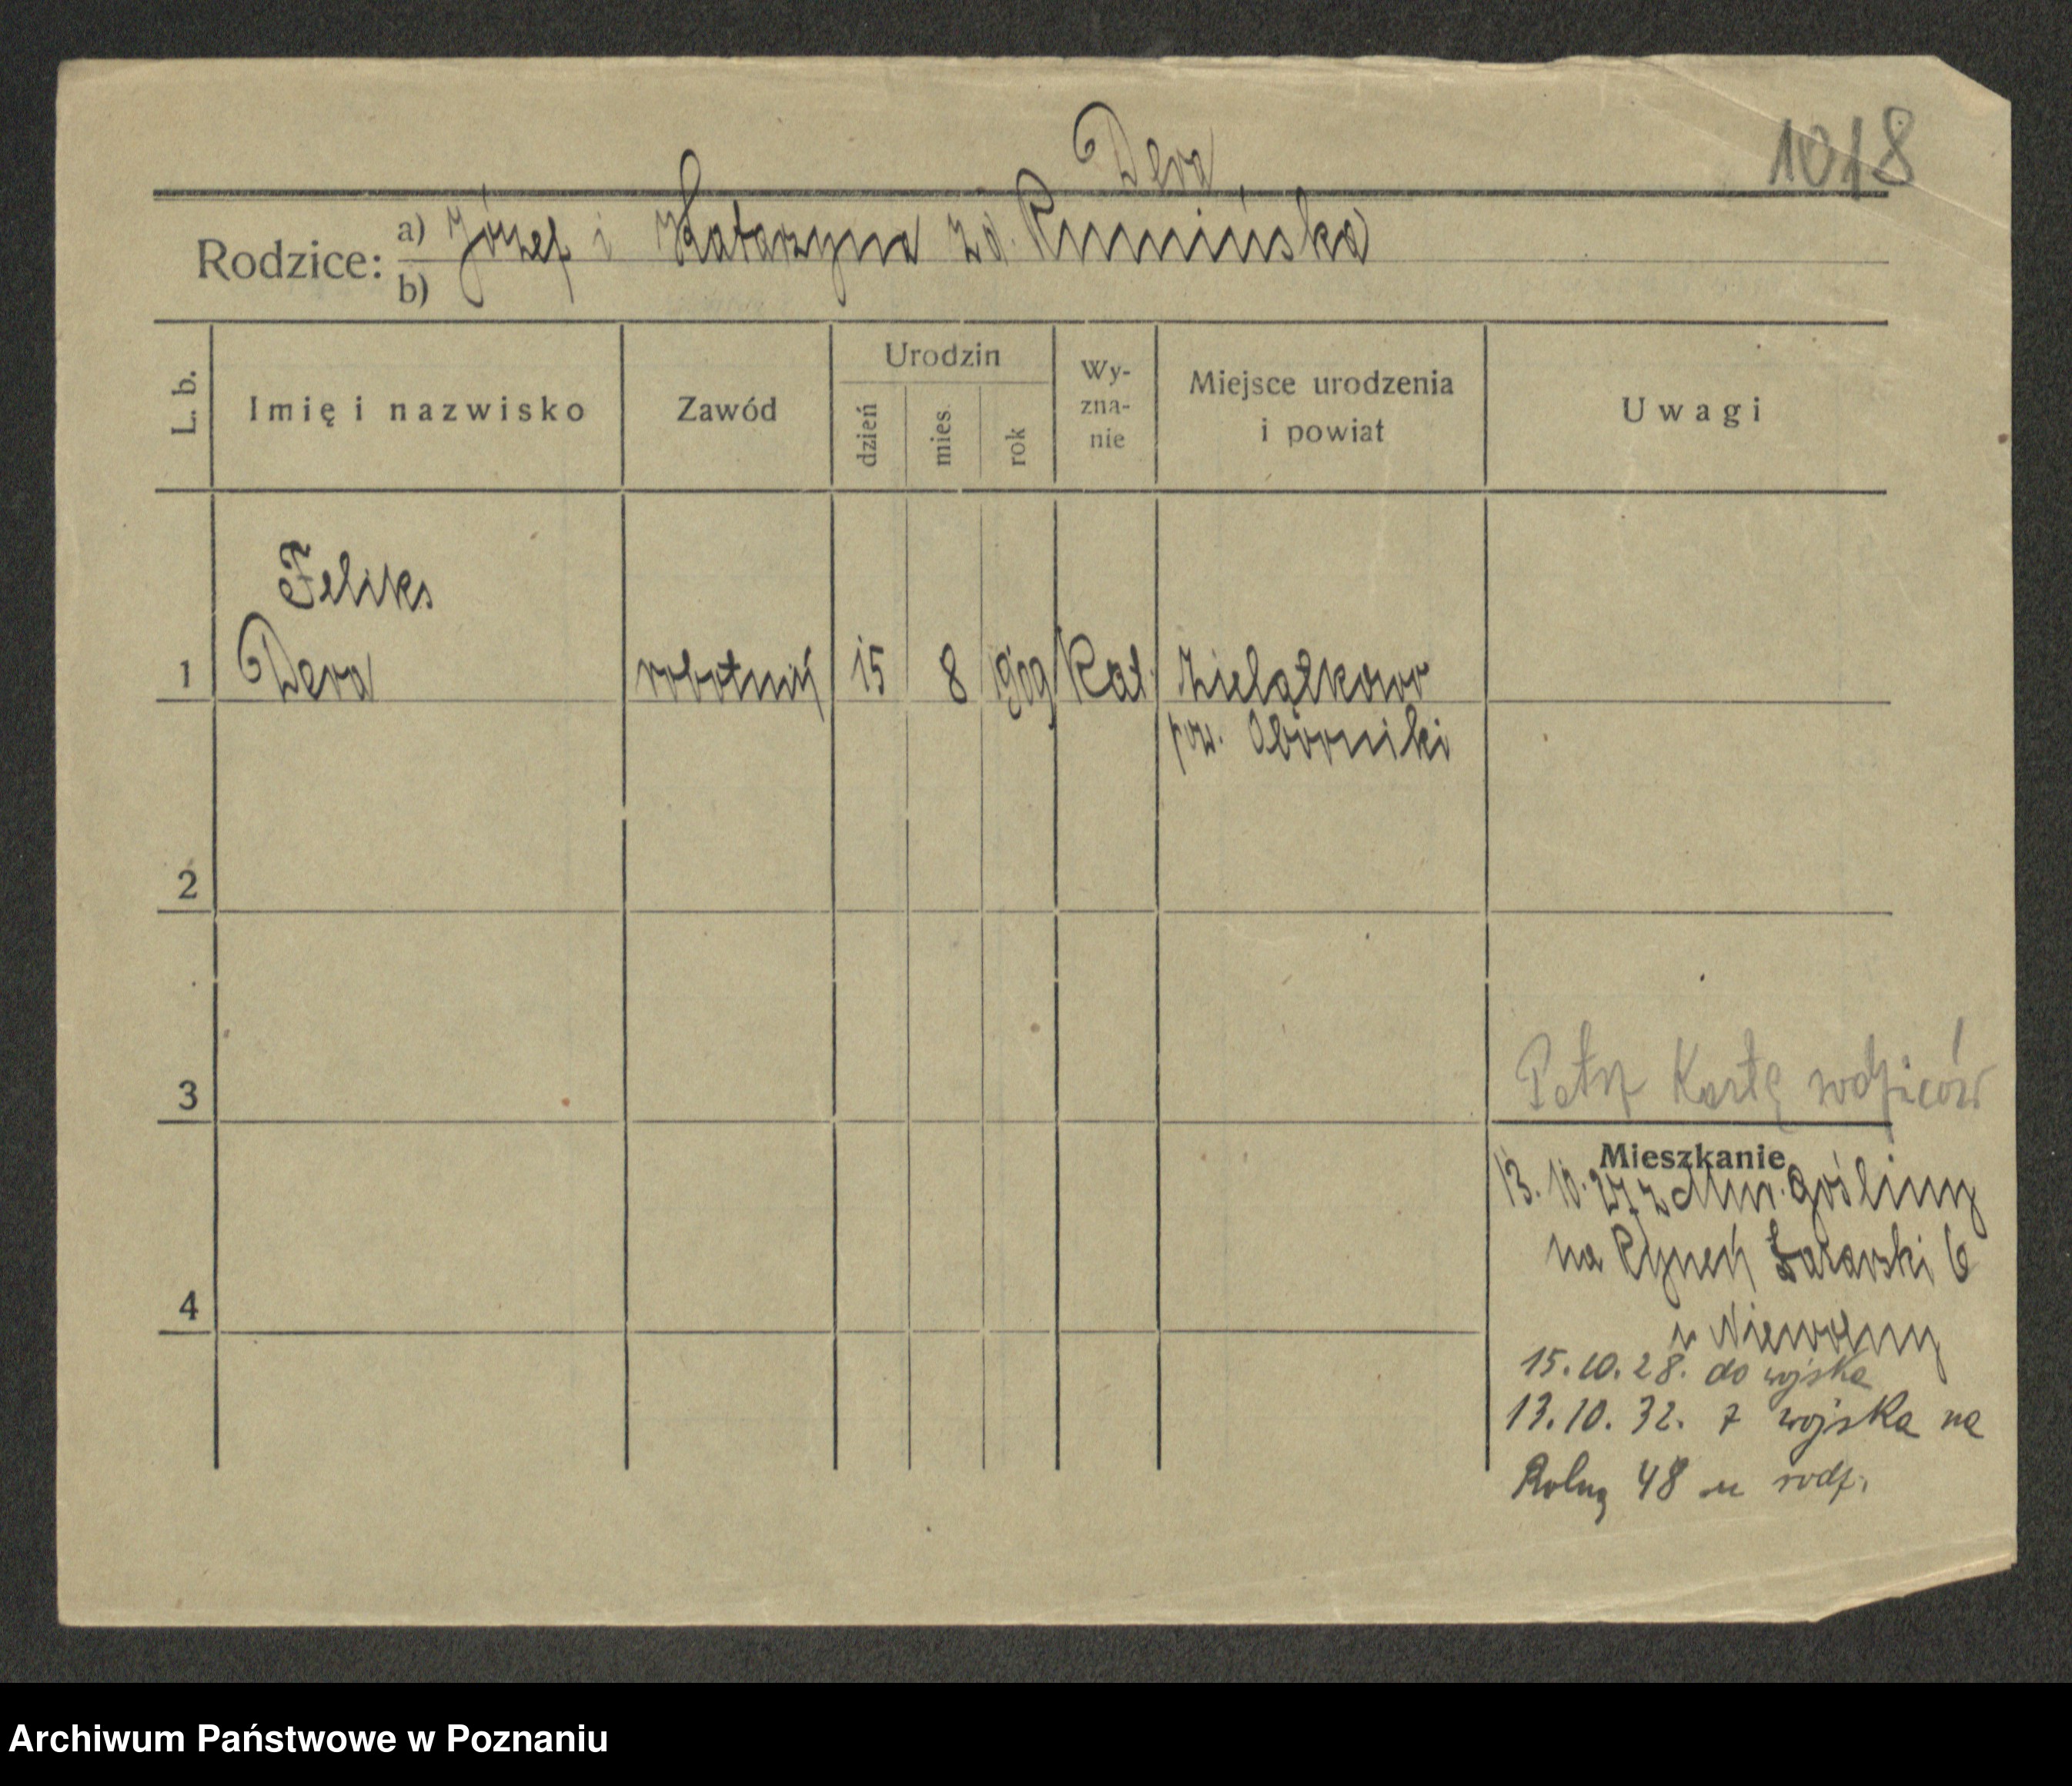 Dera
1018
Rodzice: a) Józef i Katarzyna zd. Rumińska
b)
L. b.
Imię i nazwisko
Zawód
Urodzin
dzień
mies.
rok
Wy-
zna-
nie
Miejsce urodzenia
i powiat
Uwagi
Feliks
1 Dera robotnik 15 8 1909 Kat. Zielątkowo
pow. Oborniki
2
3
Patrz Kartę rodziców
Mieszkanie
13. 10. 27 z Mur. Gośliny
na Rynek Łazarski 6
u Niewolny
4
15. 10. 28. do wojska
13. 10. 32. z wojska na
Rolną 48 u rodz.
Archiwum Państwowe w Poznaniu